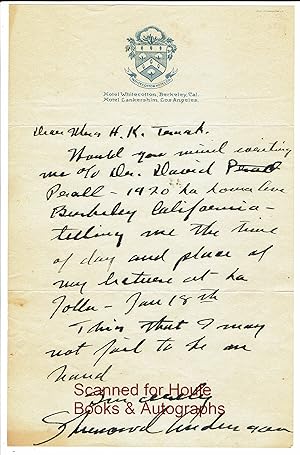 Hotel Whitecotton, Berkeley, Cal.
Hotel Lankershim, Los Angeles.
Dear Miss H. K.
Would you mind writing
me c/o Dr. David
- 1920
Berkeley California -
telling me the time
of day and place of
my lecture at La
Jolla - Jan 18th
This that I may
not fail to be on
hand
Sincerely
Scanned for Houle
Books & Autographs
Sherwood Anderson